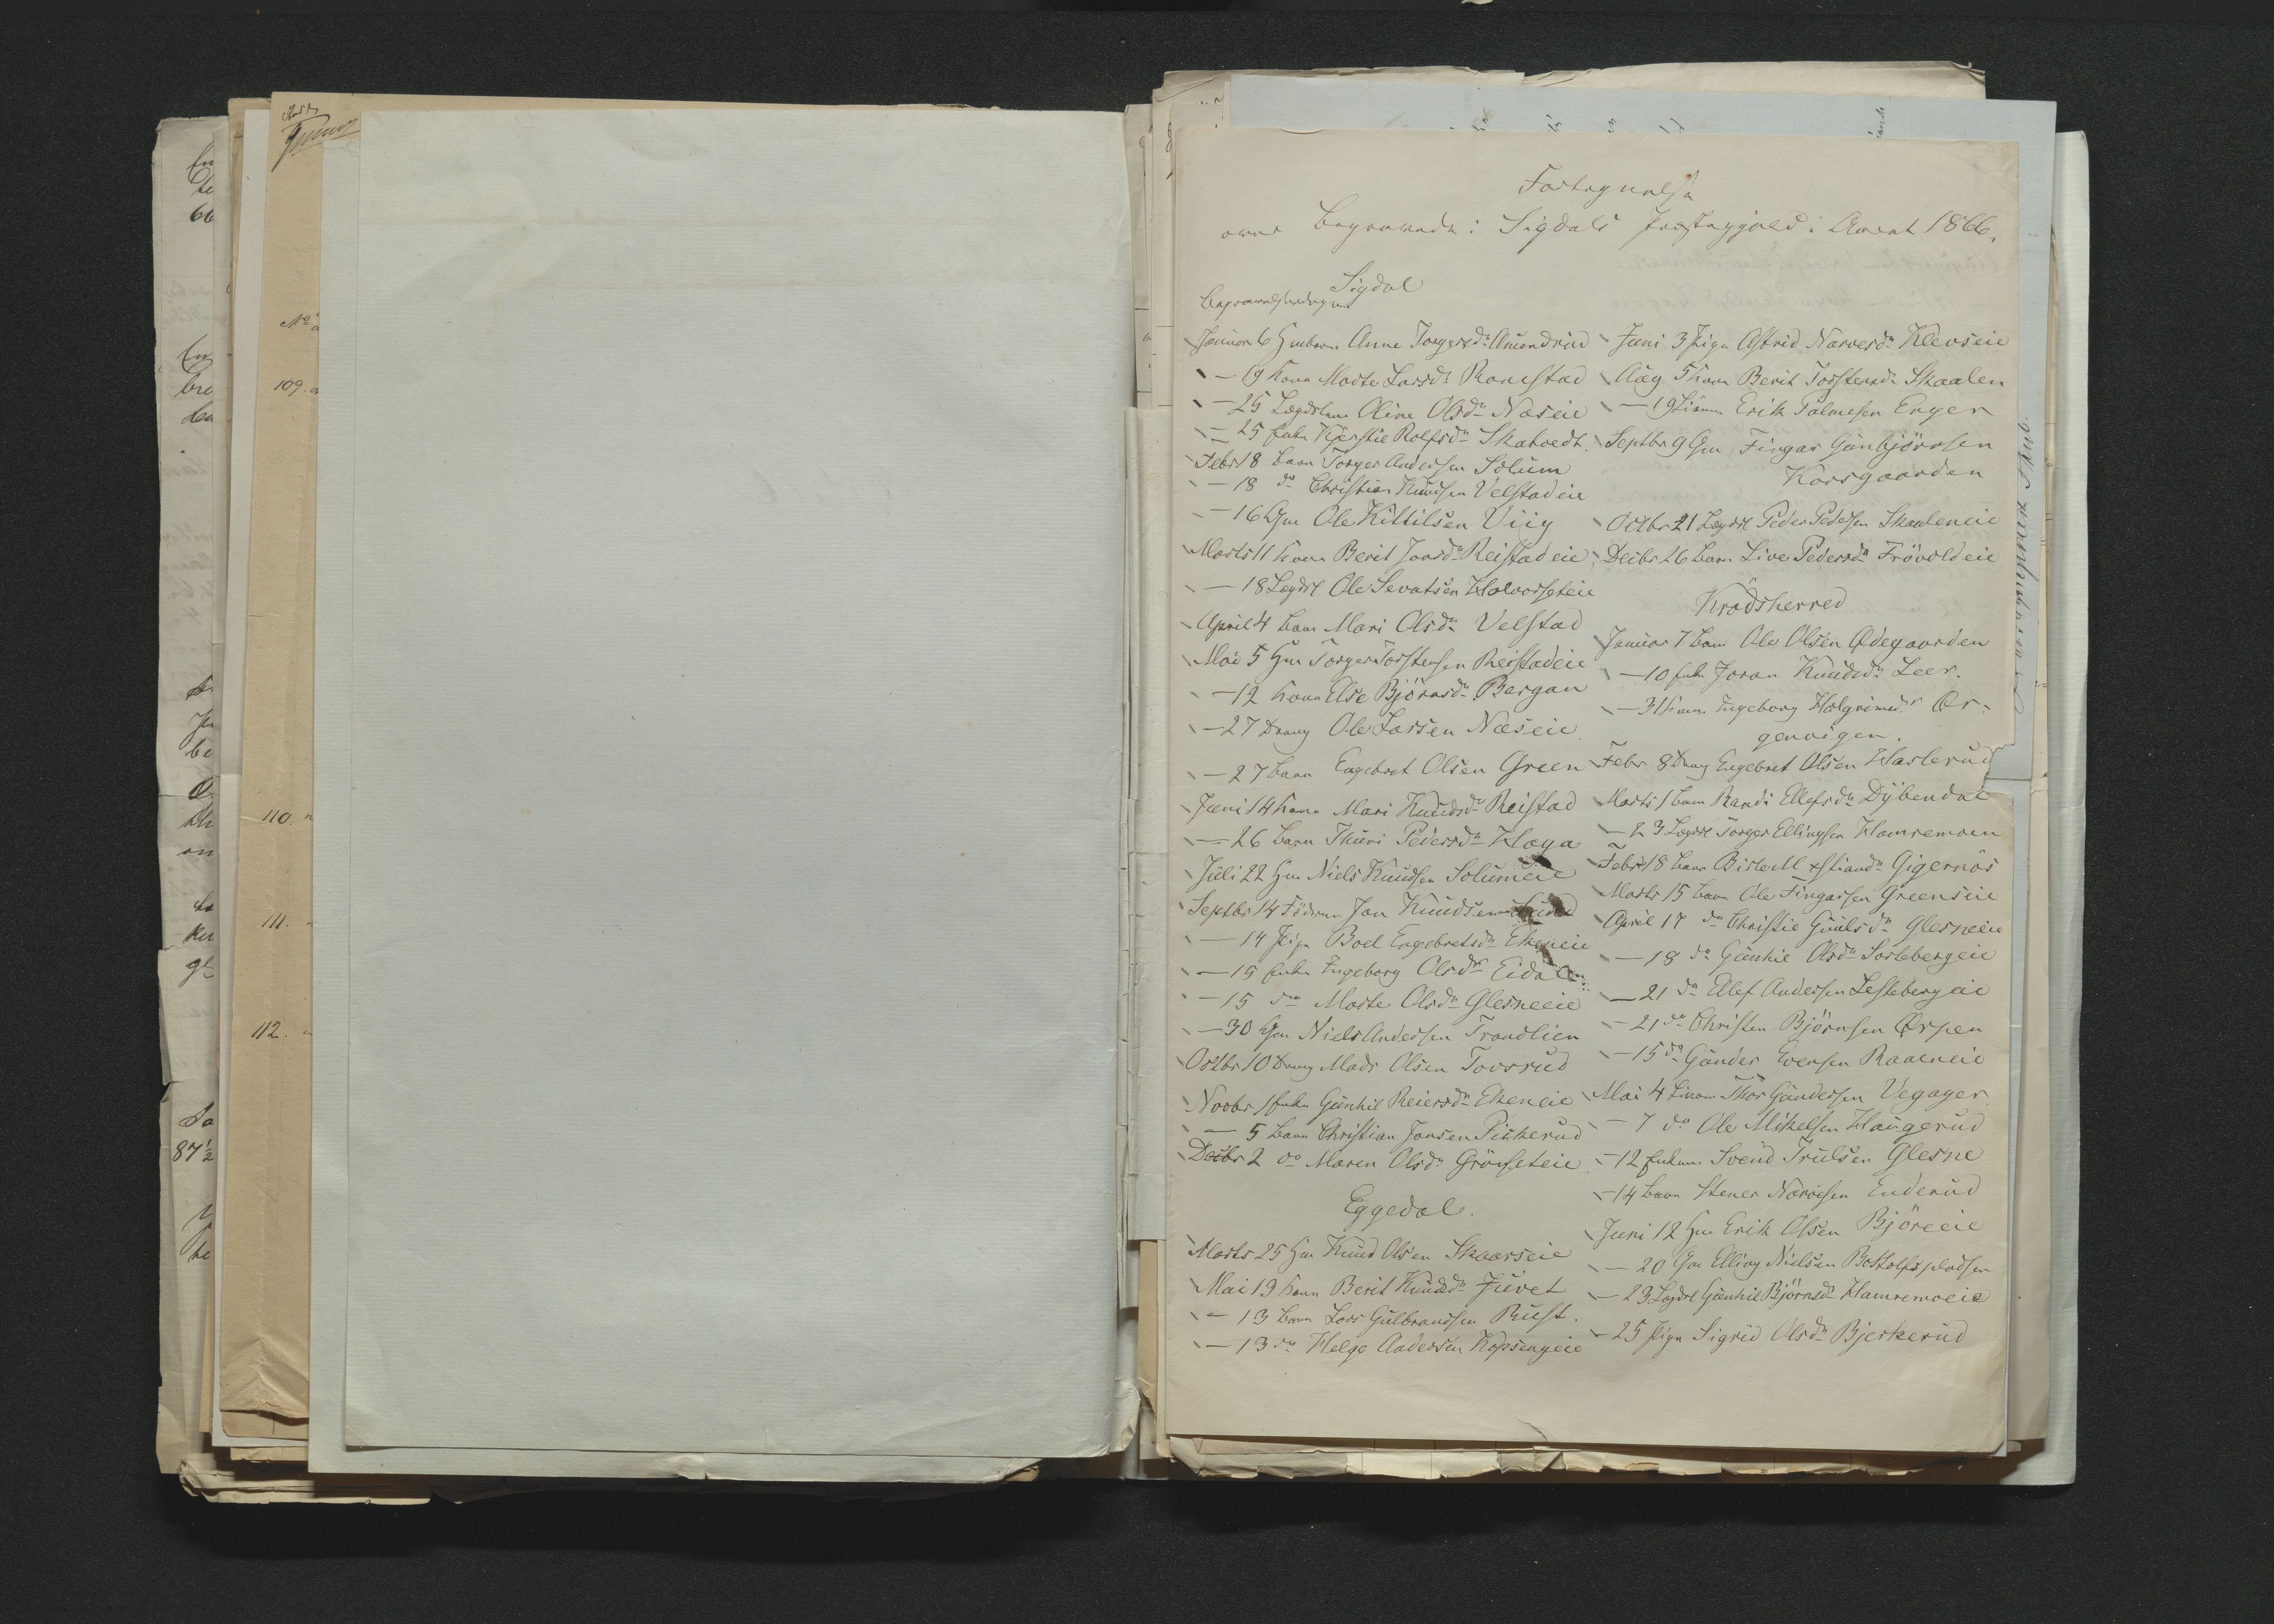 No
109.
110.
111.
112.
87½
Fortegnelse
over Begravede i Sigdals Præstegjæld i Aaret 1866.
Sigdal
Begravelsesdagen
Januar 6 Anne Torgersdr Amundrud
— 19 Kone Marte Larsdr Ronestad
— 25 Lægdslem Oline Olsdr Næseie
— 25 Enke Kjerstie Rolfsdr Skatvedt
Febr 18 Barn Torger Andersen Solum
— 18 do Christian Knudsen Velstadeie
— 16 Gm Ole Kittilsen Viig
Marts 11 Kone Berit Joarsdr Reistadeie
— 18 Lægdsl Ole Sevatsen Halvorseteie
April 4 Barn Mari Olsdr Velstad
Mai 5 Hm Torger Torstensen Reistadeie
— 12 Kone Else Björnsdr Bergan
— 27 Dreng Ole Larsen Næseie
— 27 Barn Engebret Olsen Green
Juni 14 Kone Mari Knudsdr Reistad
— 26 Barn Thuri Pedersdr Haga
Juli 22 Hm Niels Knudsen Solumeie
Septbr 14 Jon Knudsen
— 14 Pige Boel Engebretsdr Ekeneie
— 15 Enke Ingeborg Olsdr Eidalen
— 15 do Marte Olsdr Glesneeie
— 30 Gm Niels Andersen Trandlien
Octbr 10 Dreng Mads Olsen Tovsrud
Novbr 1 Enke Gunhil Reiersdr Ekeneie
— 5 Barn Christian Jonsen Piskerud
Decbr 2 do Maren Olsdr Grönseteie
Eggedal.
Marts 25 Hm Knud Olsen Skaarseie
Mai 13 Kone Berit Knudsdr Juvet
— 13 Barn Lars Gulbrandsen Rust.
— 13 do Helge Andersen Kopsengeie
Juni 3 Pige Astrid Narvesdr Klevseie
Aug 5 Kone Berit Torstensdr Skaalen
— 19 Erik Palmesen Enger
Septbr 9 Gm Fingar Gunbjörnsen
Korsgaarden
Octbr 21 Lægdsl Peder Pedersen Skaaleneie
Decbr 26 Barn Live Pedersdr Frövoldeie
Krödsherred
Januar 7 Barn Ole Olsen Ødegaarden
— 10 Enke Joran Knudsdr Leer.
— 31 Kone Ingeborg Halgrimsdr Ør-
genvigen.
Febr 8 Dreng Engebret Olsen Haslerud
Marts 1 Barn Randi Ellefsdr Dybendal
— 23 Lægdsl Torger Ellingsen Hamremoen
Febr 18 Barn Gigernös
Marts 15 Barn Ole Fingarsen Greenseie
April 17 do Christie Guulsdr Glesneeie
— 18 do Gunhil Olsdr Sorlebergeie
— 21 do Ellef Andersen Lestebergeie
— 21 do Christen Björnsen Ørpen
— 15 do Gunder Evensen Raaeneie
Mai 4 Thor Gundersen Vegager
— 7 do Ole Mikelsen Haugerud
— 12 Enkem Svend Trulsen Glesne
— 14 Barn Stener Narvesen Enderud
Juni 12 Hm Erik Olsen Björeeie
— 20 Gm Elling Nielsen Bottolfspladsen
— 23 Lægdsl Gunhil Björnsdr Hamremoeie
— 25 Pige Sigrid Olsdr Bjerkerud